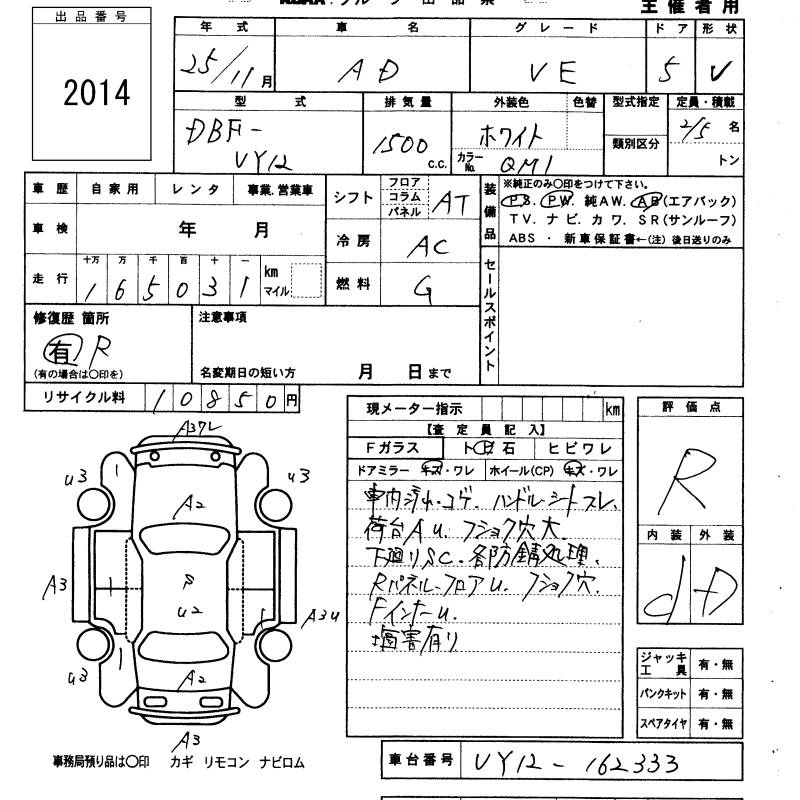 主催者用
出品番号
2014
年式 車名 グレード ドア 形状
25/11月 AD VE 5 V
型式 排気量 外装色 色替 型式指定 定員・積載
DBF-
VY12
1500 c.c.
ホワイト
カラーNo. QM1
類別区分
2/5名
トン
車歴 自家用 レンタ 事業.営業車
車検 年 月
走行 十万 万 千 百 十 一
165031 km マイル
シフト フロア コラム パネル AT
冷房 AC
燃料 G
装備品
※純正のみ〇印をつけて下さい。
PS. PW. 純AW. AB(エアバック)
TV. ナビ. カワ. SR(サンルーフ)
ABS ・ 新車保証書←(注) 後日送りのみ
セールスポイント
修復歴 箇所
有 R
(有の場合は〇印を)
注意事項
名変期日の短い方 月 日まで
リサイクル料 10850円
現メーター指示 km
【査定員記入】
Fガラス トビ石 ヒビワレ
ドアミラー キズ・ワレ ホイール(CP) キズ・ワレ
車内汚れ.コゲ. ハンドル.シートスレ.
荷台AU. フショク穴大.
下廻りSC. 各防錆処理.
Rパネル.フロアU. フショク穴.
FインナーU.
塩害有り
評価点
R
内装 外装
d D
ジャッキ工具 有・無
パンクキット 有・無
スペアタイヤ 有・無
A3
U3
U3
A2
A3
S
U2
A3U
U3
U3
A2
A3
事務局預り品は〇印 カギ リモコン ナビロム
車台番号 VY12-162333